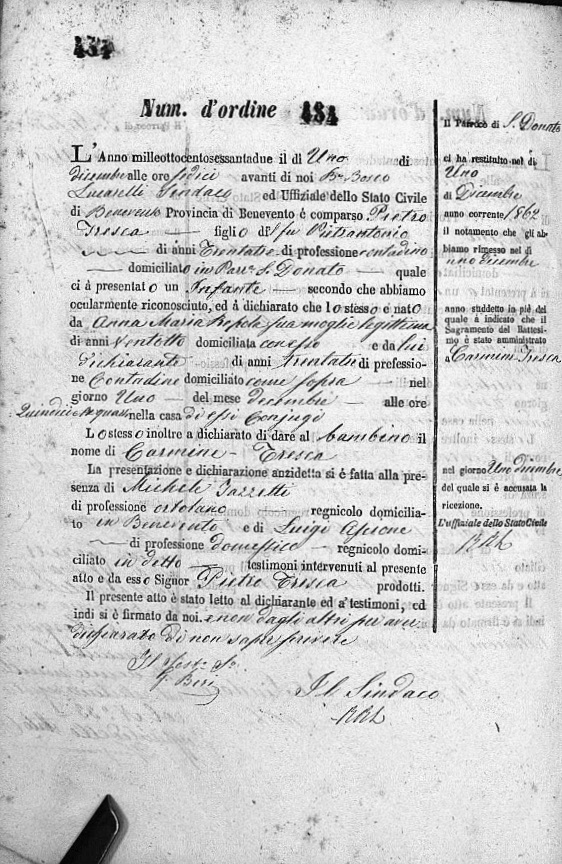 434
Num. d'ordine 434
L'Anno milleottocentosessantadue il dì Uno di
dicembre alle ore sedici avanti di noi Bne Bosco
Lucarelli Sindaco ed Uffiziale dello Stato Civile
di Benevento Provincia di Benevento é comparso Pietro
Tresca figlio del fu Pietrantonio
di anni Trentatre di professione contadino
domiciliato in Parr. S. Donato quale
ci á presentato un Infante secondo che abbiamo
ocularmente riconosciuto, ed á dichiarato che lo stesso é nato
da Anna Maria sua moglie legittima
di anni Ventotto domiciliata con esso e da lui
dichiarante di anni trentatre di professio-
ne Contadino domiciliato come sopra nel
giorno Uno del mese decembre alle ore
Quindici nella casa di essi Conjugi
Lo stesso inoltre a dichiarato di dare al bambino il
nome di Carmine Tresca
La presentazione e dichiarazione anzidetta si é fatta alla pre-
senza di Michele
di professione ortolano regnicolo domicilia-
to in Benevento e di Luigi
di professione domestico regnicolo domi-
ciliato in detto testimoni intervenuti al presente
atto e da esso Signor Pietro Tresca prodotti.
Il presente atto è stato letto al dichiarante ed a' testimoni, ed
indi si é firmato da noi e non dagli altri per aver
dichiarato di non saper scrivere
Il
Il Sindaco
Il Parroco di S. Donato
ci ha restituito nel dì
Uno
di Dicembre
anno corrente 1862
il notamento che gli ab-
biamo rimesso nel dì
uno dicembre
anno suddetto in piè del
quale á indicato che il
Sagramento del Battesi-
mo è stato amministrato
a Carmine Tresca
nel giorno Uno dicembre
del quale si é accusata la
ricezione.
L'uffiziale dello Stato Civile